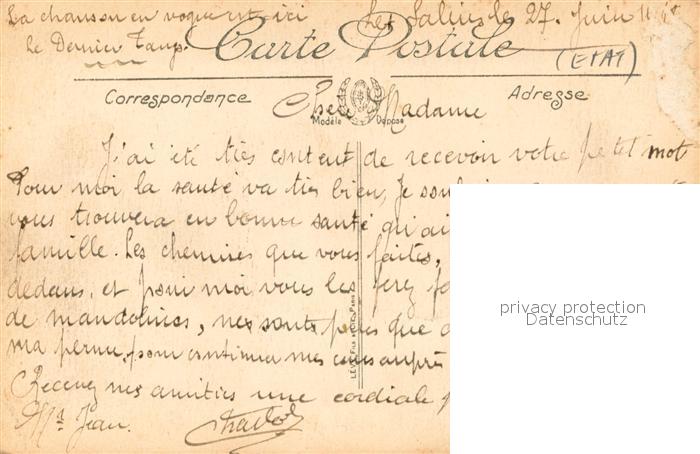 La chanson en vogue est ici
Le Dernier Tango
Les Salins le 27 Juin
Carte Postale
(ETAT)
Correspondance
Adresse
Chère Madame
Modèle Déposé
J'ai été très content de recevoir votre petit mot
Pour moi la santé va très bien, Je
vous trouvera en bonne santé
famille. Les chemises que vous faites,
dedans, et pour moi vous les ferez
de mandolines, nes sont plus que
ma permu, pour continuer mes cours auprès
Recevez mes amitiés une cordiale
Jean.
Charlot
LEVY FILS
privacy protection
Datenschutz